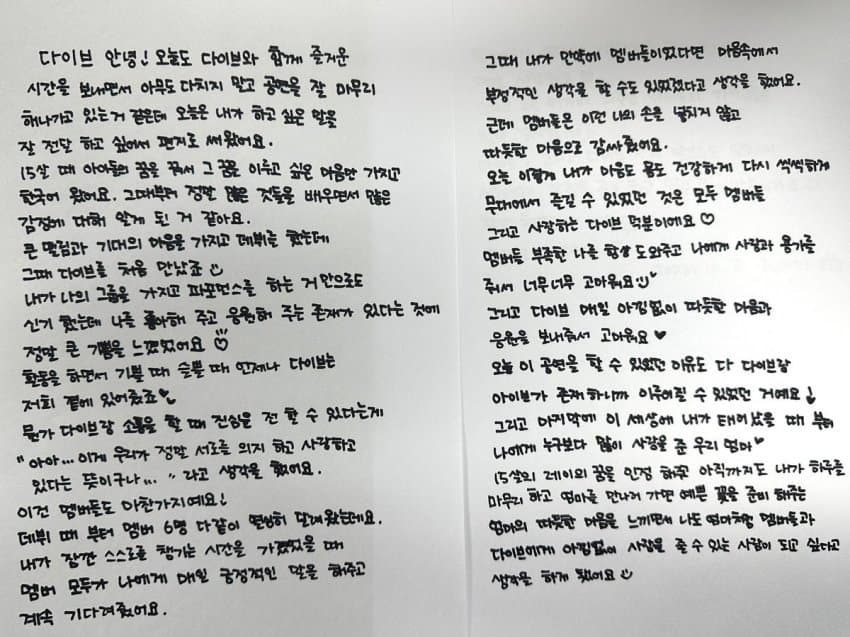 다이브 안녕! 오늘도 다이브와 함께 즐거운
시간을 보내면서 아무도 다치지 말고 공연을 잘 마무리
해나가고 있는거 같은데 오늘은 내가 하고 싶은 말을
잘 전달 하고 싶어서 편지로 써왔어요.
15살 때 아이돌의 꿈을 꿔서 그 꿈을 이루고 싶은 마음만 가지고
한국에 왔어요. 그때부터 정말 많은 것들을 배우면서 많은
감정에 대해 알게 된 거 같아요.
큰 떨림과 기대의 마음을 가지고 데뷔를 했는데
그때 다이브를 처음 만났죠
내가 나의 그룹을 가지고 퍼포먼스를 하는 거 만으로도
신기 했는데 나를 좋아해 주고 응원해 주는 존재가 있다는 것에
정말 큰 기쁨을 느꼈었어요 ♡
활동을 하면서 기쁠 때 슬플 때 언제나 다이브는
저희 곁에 있어줬죠♥
뭔가 다이브랑 소통을 할 때 진심을 전 할 수 있다는게
"아아... 이게 우리가 정말 서로를 의지 하고 사랑하고
있다는 뜻이구나..." 라고 생각을 했어요.
이건 멤버들도 마찬가지예요!
데뷔 때 부터 멤버 6명 다같이 열심히 달려왔는데요.
내가 잠깐 스스로를 챙기는 시간을 가졌었을 때
멤버 모두가 나에게 매일 긍정적인 말을 해주고
계속 기다려줬어요.
그때 내가 만약에 멤버들이었다면 마음속에서
부정적인 생각을 할 수도 있었겠다고 생각을 했어요.
근데 멤버들은 이런 나의 손을 놓치지 않고
따듯한 마음으로 감싸줬어요.
오늘 이렇게 내가 마음도 몸도 건강하게 다시 씩씩하게
무대에서 즐길 수 있었던 것은 모두 멤버들
그리고 사랑하는 다이브 덕분이에요♡
멤버들 부족한 나를 항상 도와주고 나에게 사랑과 용기를
줘서 너무너무 고마워요
그리고 다이브 매일 아낌없이 따듯한 마음과
응원을 보내줘서 고마워요 ♥
오늘 이 공연을 할 수 있었던 이유도 다 다이브랑
아이브가 존재하니까 이루어질 수 있었던 거예요!
그리고 마지막에 이 세상에 내가 태어났을 때 부터
나에게 누구보다 많이 사랑을 준 우리 엄마♥
15살의 레이의 꿈을 인정 해주고 아직까지도 내가 하루를
마무리 하고 엄마를 만나러 가면 예쁜 꽃을 준비 해주는
엄마의 따듯한 마음을 느끼면서 나도 엄마처럼 멤버들과
다이브에게 아낌없이 사랑을 줄 수 있는 사람이 되고 싶다고
생각을 하게 됐어요